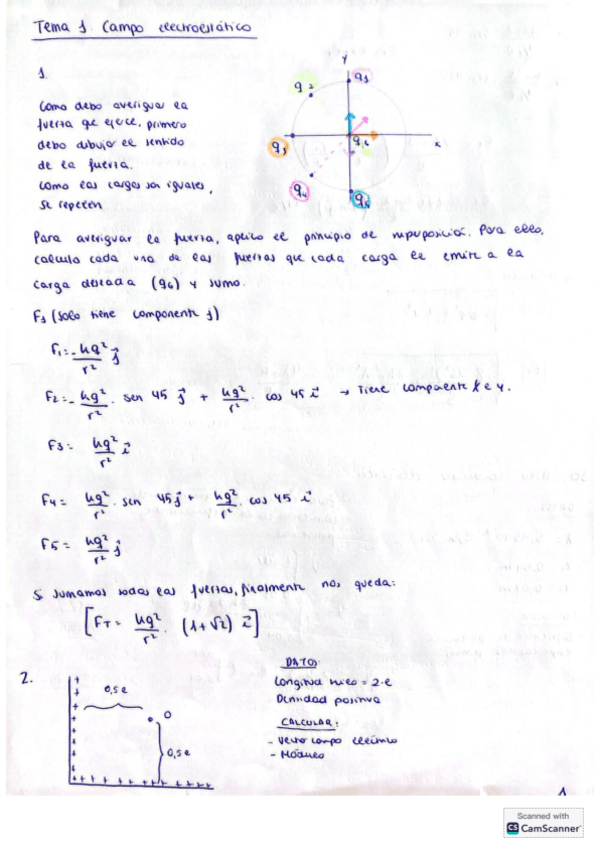 Tema 1. Campo electroestático
1.
Como debo averiguar la
fuerza que ejerce, primero
debo dibujar el sentido
de la fuerza.
Como las cargas son iguales,
se repelen
y
q2
q1
q3
q6
x
q4
q5
Para averiguar la fuerza, aplico el principio de superposición. Para ello,
calculo cada una de las fuerzas que cada carga le emite a la
carga deseada (q6) y sumo.
F1 (solo tiene componente j)
F1 = - kq²/r² j⃗
F2 = - kq²/r² · sen 45 j⃗ + kq²/r² · cos 45 i⃗ → Tiene componente x e y.
F3 = kq²/r² i⃗
F4 = kq²/r² · sen 45 j⃗ + kq²/r² · cos 45 i⃗
F5 = kq²/r² j⃗
Si sumamos todas las fuerzas, finalmente nos queda:
[FT = kq²/r² · (1+√2) i⃗]
2.
0,5 l
O
0,5 l
DATOS
Longitud hilo = 2·l
Densidad positiva
CALCULAR:
- Vector campo eléctrico
- Módulo
1
Scanned with
CS CamScanner